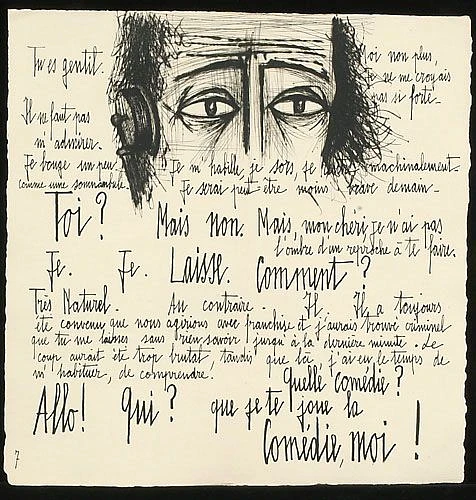 Tu es gentil.
Moi non plus,
Je ne me croyais
pas si forte_
Il ne faut pas
m'admirer_
Je bouge un peu
comme une somnambule_
Je m'habille, je sors, je machinalement_
Je serai peut être moins brave demain_
Toi ? Mais non. Mais, mon chéri je n'ai pas
l'ombre d'un reproche à te faire.
Je. Je. Laisse. Comment ?
Très Naturel. Au contraire. Il. Il a toujours
été convenu que nous agirions avec franchise et j'aurais trouvé criminel
que tu me laisses sans rien savoir jusqu'à la dernière minute. Le
coup aurait été trop brutal, tandis que là, j'ai eu le temps de
m'habituer, de comprendre.
Quelle comédie ?
Allo ! Qui ? que je te joue la
Comédie, moi !
7